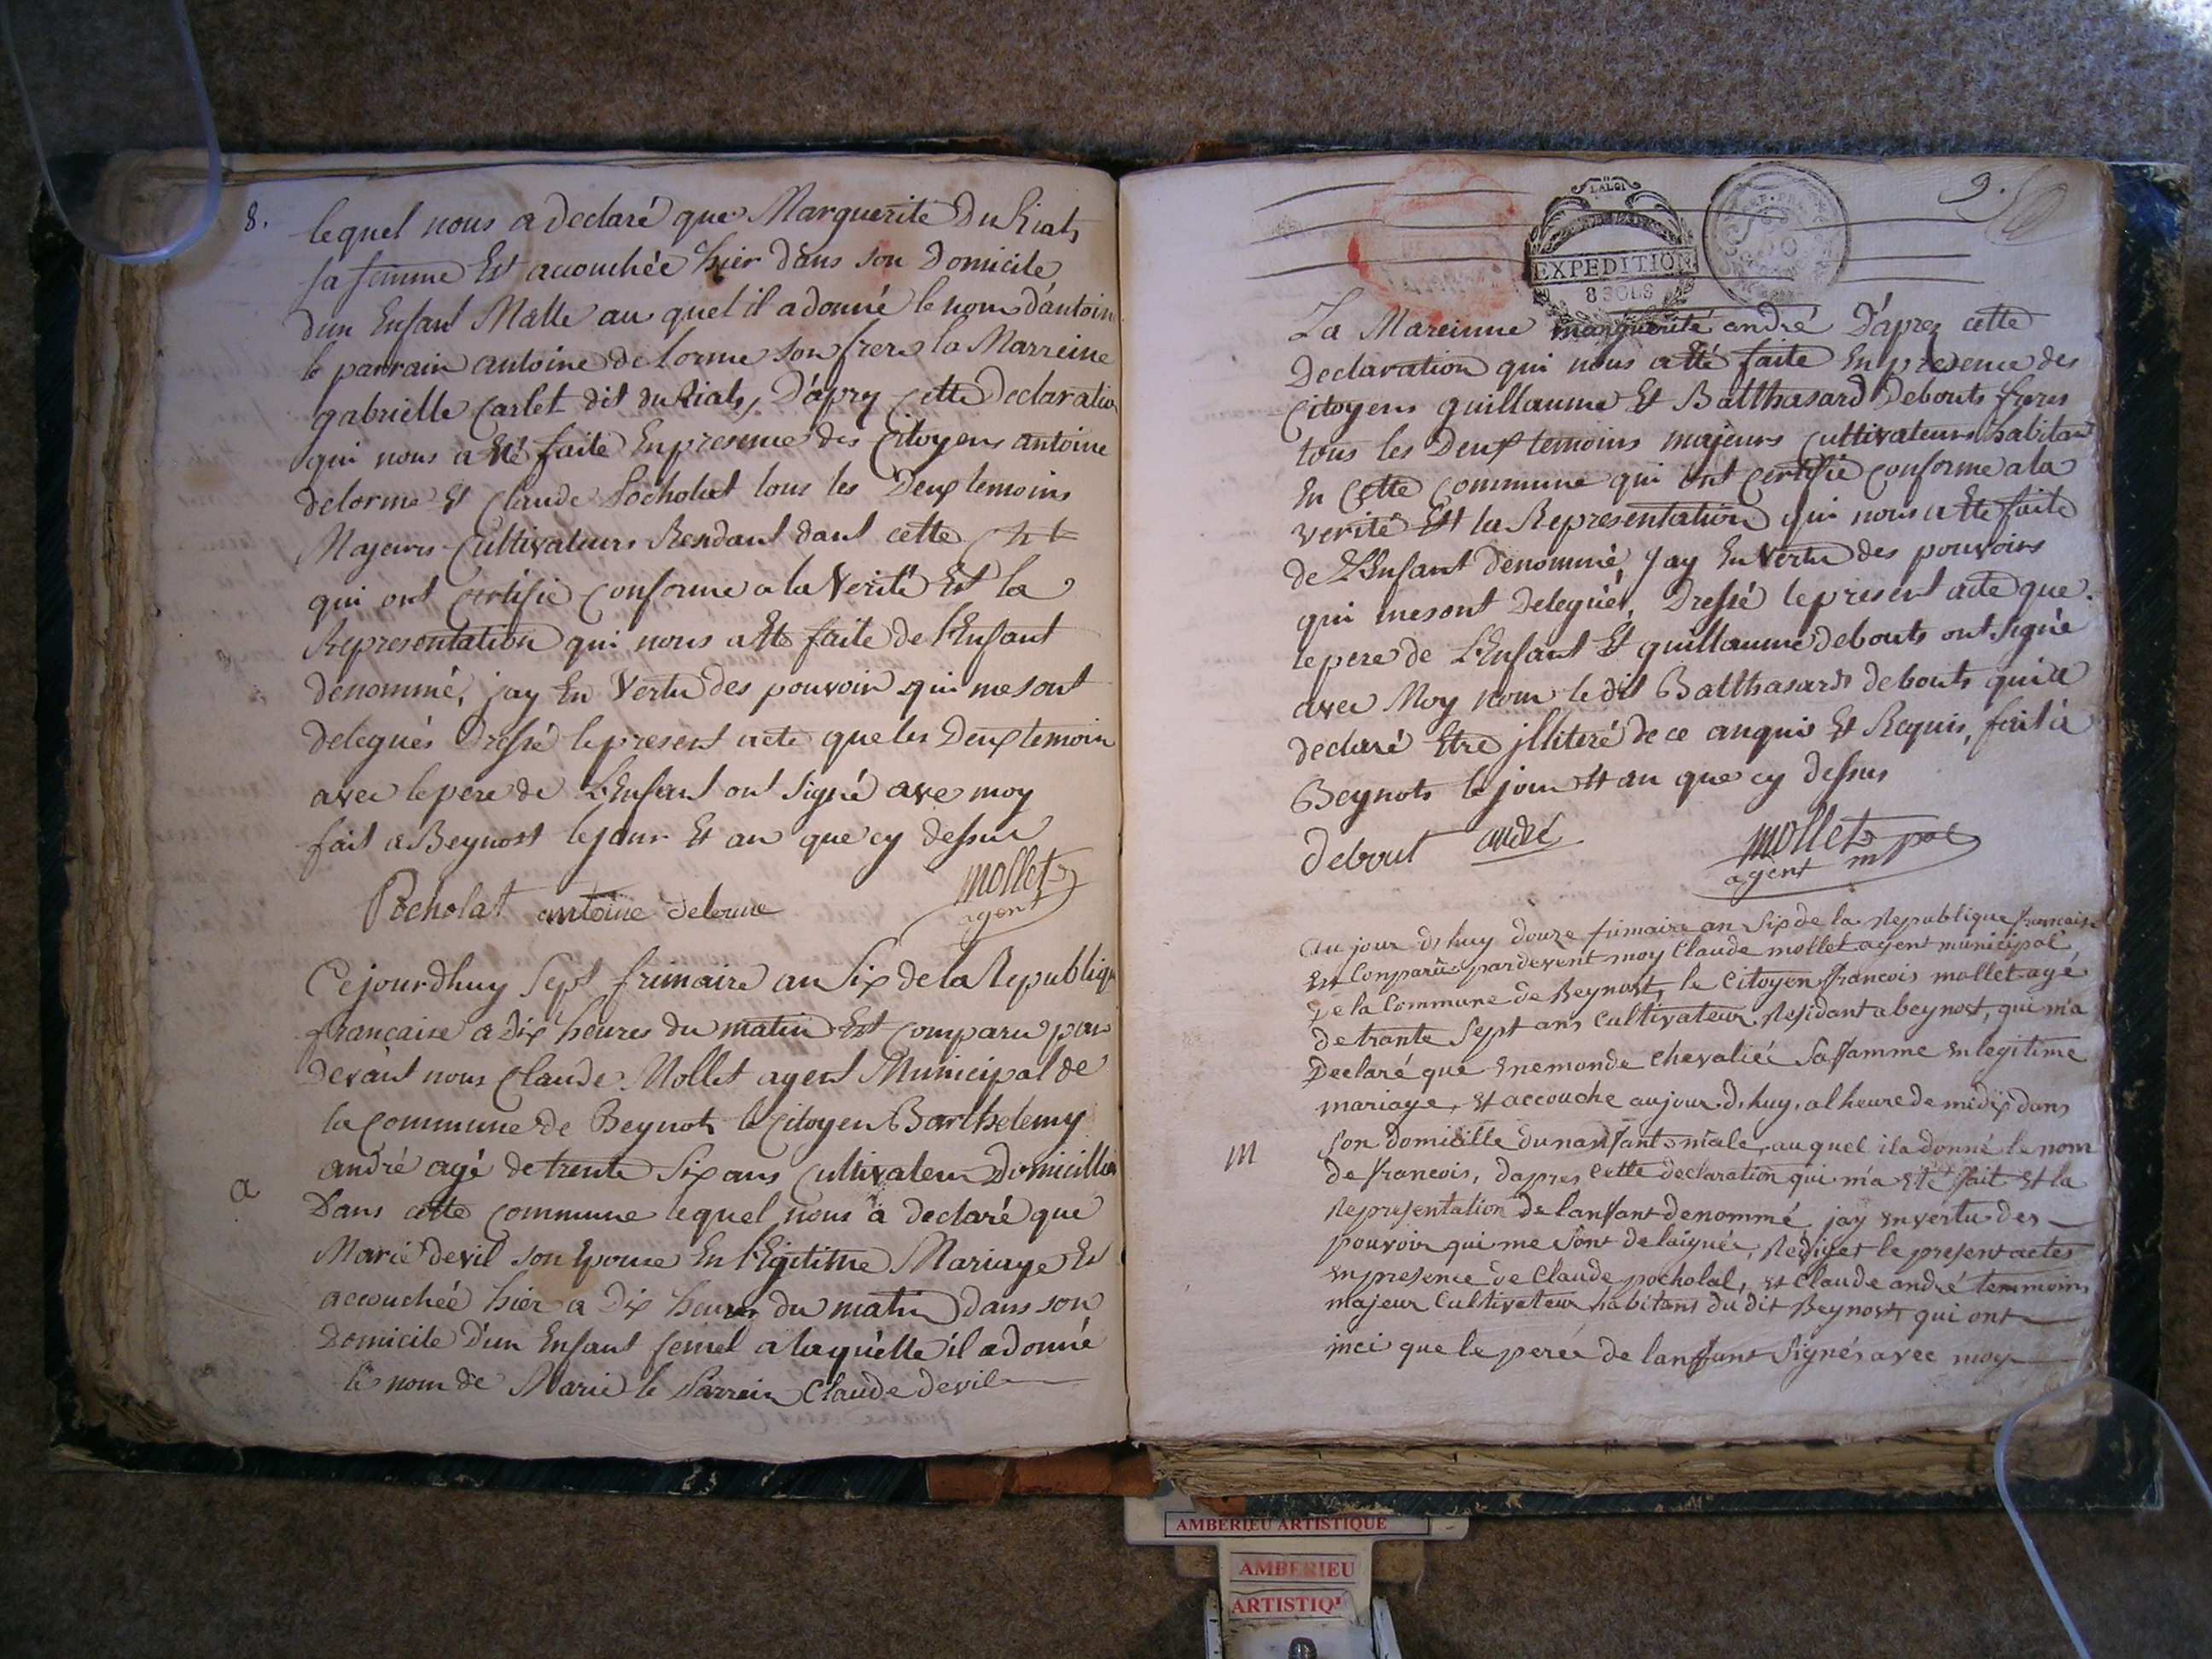 8.
lequel nous a declaré que Marguerite Du Riats
sa femme Est acouchée hier dans son Domicile
dun Enfant Malle au quel il a donné le nom d'antoin
le parrain antoine delorme son frere la Marreine
gabrielle Carlet dit du Riats, D'aprez Cette Declaration
qui nous a Eté faite En presence des Citoyens antoine
delorme Et Claude Pocholat tous les Deux temoins
Majeurs Cultivateurs Residant dans cette
qui ont Certifié Conforme a la Verité Et la
Representation qui nous a Eté faite de l'Enfant
denommé, jay En Vertu des pouvoir qui me sont
delegués Dressé le present acte que les Deux temoin
avec le pere de L'Enfant ont signé avec moy
fait a Beynost le jour Et an que cy dessus
Pocholat antoine delorme
mollet
agent
Cejourdhuy Sept frimaire an Six de la Republiq
française a Dix heures du matin Est Comparu par
Devant nous Claude Mollet agent Municipal de
la Commune de Beynots le Citoyen Barthelemy
andré agé de trente Six ans Cultivateur Domicillié
a
Dans cette Commune lequel nous a declaré que
Marie devil son Epouse En legitime Mariage Est
accouchée hier a Dix heures du matin dans son
Domicile D'un Enfant femel a laquelle il a donné
le nom de Marie le Parrain Claude devil
9.
LA LOI
EXPEDITION
8 SOLS
La Mareinne marguerite andré D'aprez cette
Declaration qui nous a Eté faite En presence des
Citoyens guillaume Et Balthasard Debouts freres
tous les Deux temoins majeurs Cultivateurs habitant
En Cette Commune qui ont Certifié Conforme a la
verité Et la Representation qui nous a Eté faite
de L'Enfant denommé, Jay En Vertu des pouvoirs
qui me sont Delegués, Dressé le present acte que
le pere de L'Enfant Et guillaume debouts ont signé
avec Moy non le dit Balthasard debouts qui a
declaré Etre jlliteré de ce anquis Et Requis, fait à
Beynots le jour Et an que cy dessus
debout andré
mollet
agent mpal
au jour dhuy douze frimaire an Six de la Republique francaise
Est Comparû pardevent moy Claude mollet agent municipal
de la Commune de Beynost, le Citoyen francois mollet agé
de trante Sept ans Cultivateur, Residant a beynost, qui m'a
Declaré que Enemonde Chevalié Sa famme en legitime
mariage, Et accouche aujour d'huy, alheure de midix dans
m
son domicille dun anfant mâle, au quel il a donné le nom
de francois, dapres Cette declaration qui m'a Eté fait Et la
Representation de lanfant denommé jay en vertu des
pouvoir qui me sont delaigués, Rediget le present actes
en presence de Claude pocholat, Et Claude andré temmoins
majeur Cultivateur habitans du dit Beynost, qui ont
inci que le pere de lanfant Signés avec moy
AMBERIEU ARTISTIQUE
AMBERIEU
ARTISTIQ